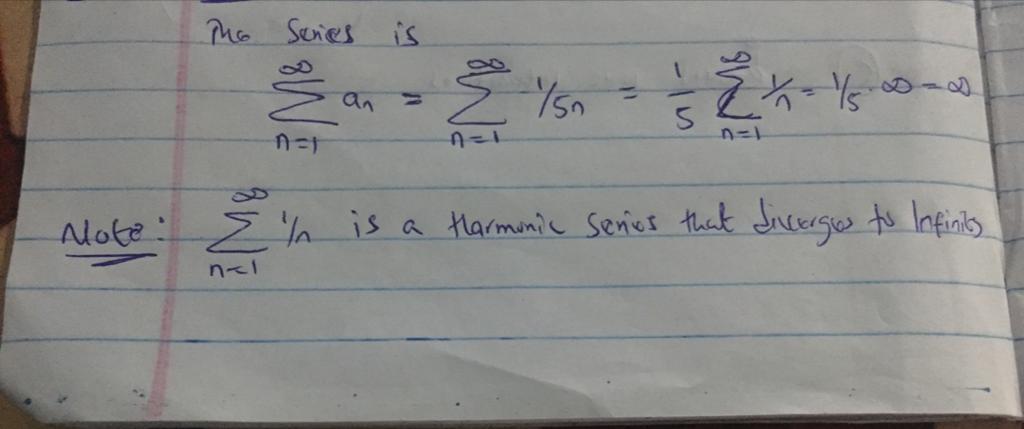 The Series is
∞ ∞ ∞
∑ aₙ = ∑ 1/5n = 1/5 ∑ 1/n = 1/5 · ∞ = ∞
n=1 n=1 n=1
∞
Note: ∑ 1/n is a Harmonic Series that diverges to Infinity
n=1